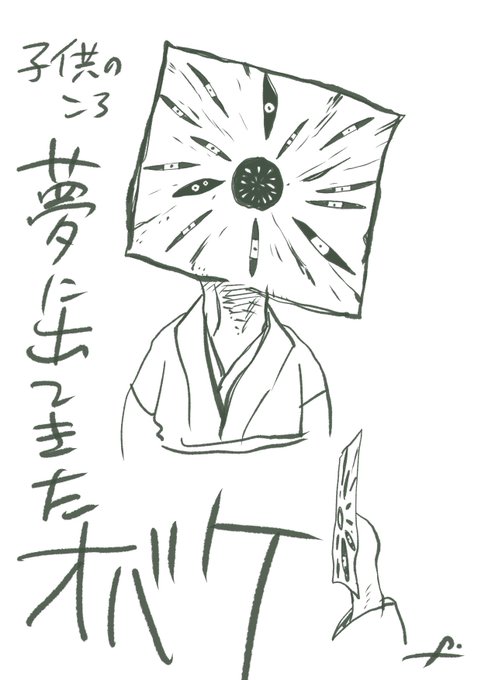 子供の
ころ
夢に出てきた
オバケ